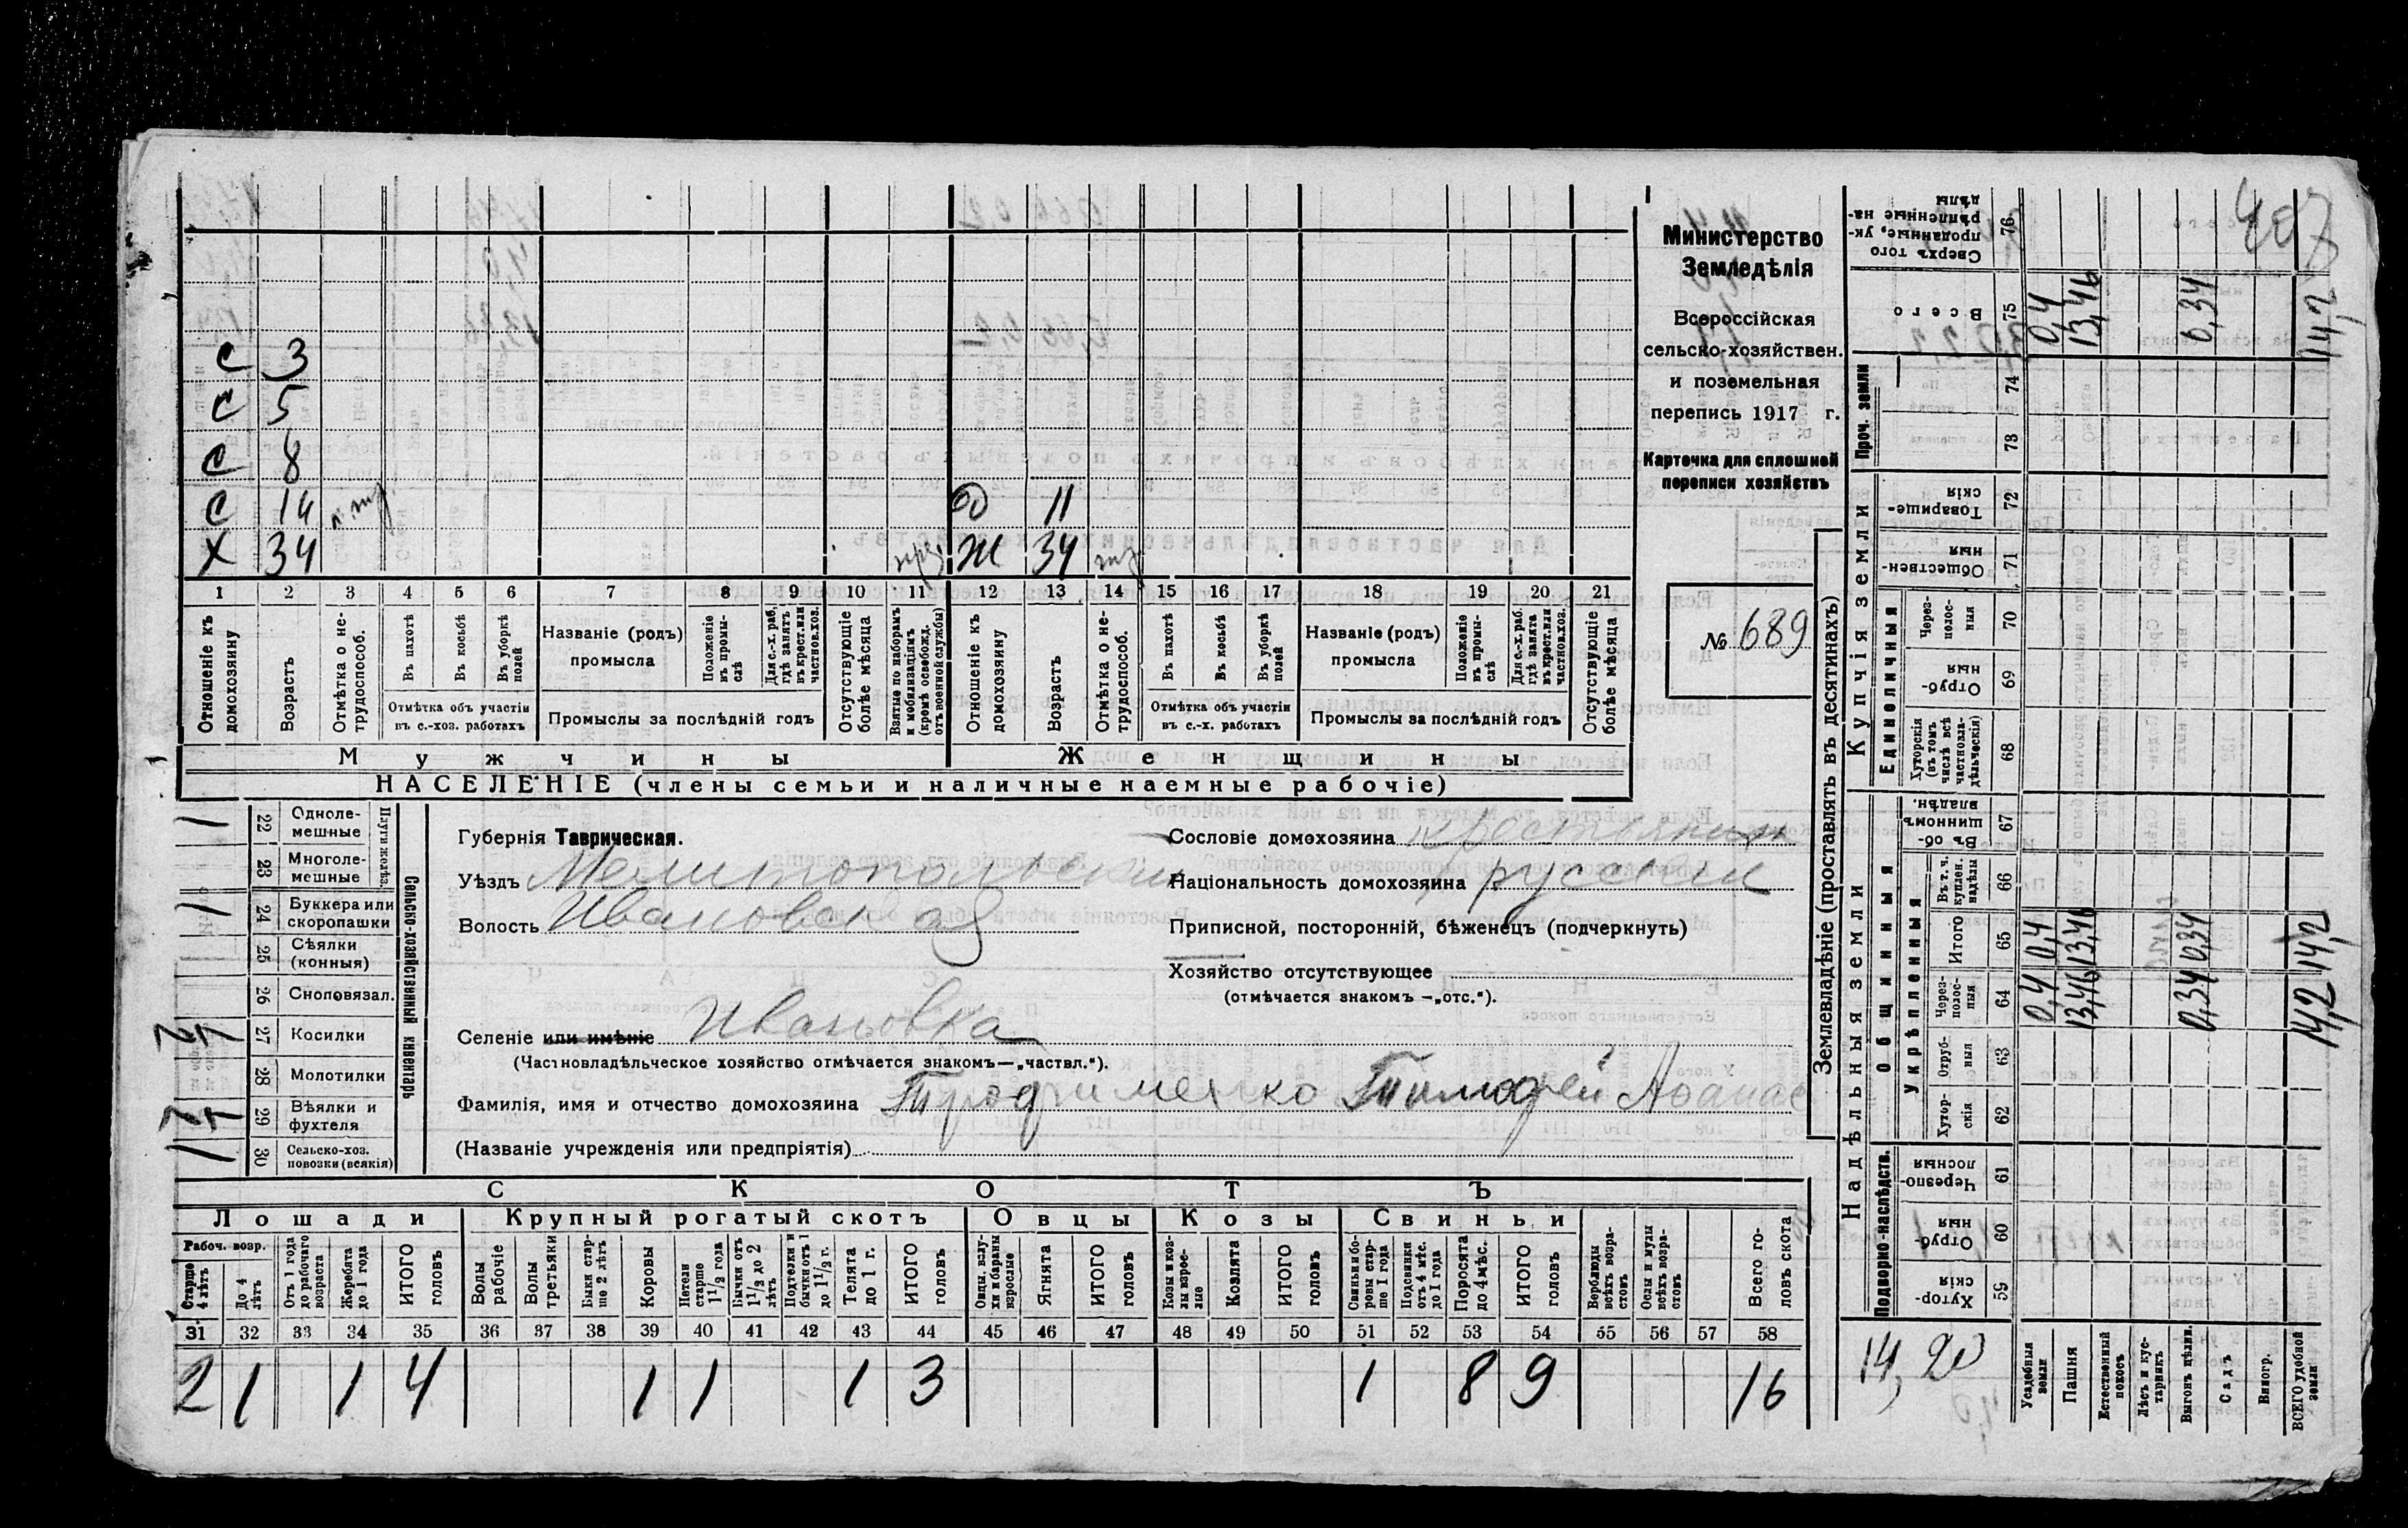 407
Министерство
Земледѣлія
Всероссійская
сельско-хозяйствен.
и поземельная
перепись 1917 г.
Карточка для сплошной
переписи хозяйствъ
№ 689
С 3
С 5
С 8
С 14
Д 11
Х 34
Ж 34
1 2 3 4 5 6 7 8 9 10 11 12 13 14 15 16 17 18 19 20 21
Отношеніе къ домохозяину
Возрастъ
Отмѣтка о нетрудоспособ.
Въ пахотѣ
Въ косьбѣ
Въ уборкѣ полей
Отмѣтка объ участіи
въ с.-хоз. работахъ
Названіе (родъ)
промысла
Положеніе въ промыслѣ
Для с.-х. раб. гдѣ занятъ въ крест. или частнов. хоз.
Промыслы за послѣдній годъ
Отсутствующіе болѣе мѣсяца
Взятые по наборамъ и мобилизаціямъ (кромѣ освобожд. отъ военной службы)
Отношеніе къ домохозяину
Возрастъ
Отмѣтка о нетрудоспособ.
Въ пахотѣ
Въ косьбѣ
Въ уборкѣ полей
Отмѣтка объ участіи
въ с.-х. работахъ
Названіе (родъ)
промысла
Положеніе въ промыслѣ
Для с.-х. раб. гдѣ занята въ крест. или частнов. хоз.
Промыслы за послѣдній годъ
Отсутствующіе болѣе мѣсяца
Мужчины
Женщины
НАСЕЛЕНІЕ (члены семьи и наличные наемные рабочіе)
Сельско-хозяйственный инвентарь
Плуги желѣз.
22 Однолемешные 1
23 Многолемешные
24 Буккера или скоропашки 1
25 Сѣялки (конныя)
26 Сноповязал.
27 Косилки 1/2
28 Молотилки
29 Вѣялки и фухтеля
30 Сельско-хоз. повозки (всякія) 1
Губернія Таврическая.
Уѣздъ Мелитопольскій
Волость Ивановская
Сословіе домохозяина крестьянин
Національность домохозяина русскій
Приписной, посторонній, бѣженецъ (подчеркнуть)
Хозяйство отсутствующее
(отмѣчается знакомъ —„отс.“).
Селеніе или имѣніе Ивановка
(Частновладѣльческое хозяйство отмѣчается знакомъ—„частвл.“).
Фамилія, имя и отчество домохозяина Трофименко Тимофей Афанас
(Названіе учрежденія или предпріятія)
СКОТЪ
Лошади Крупный рогатый скотъ Овцы Козы Свиньи
Рабоч. возр.
Старше 4 лѣтъ
До 4 лѣтъ
Отъ 1 года до рабочаго возраста
Жеребята до 1 года
ИТОГО головъ
Волы рабочіе
Волы третьяки
Быки старше 2 лѣтъ
Коровы
Нетели старше 1 1/2 года
Бычки отъ 1 1/2 до 2 лѣтъ
Подтелки и бычки отъ 1 до 1 1/2 г.
Телята до 1 г.
ИТОГО головъ
Овцы, валухи и бараны взрослые
Ягнята
ИТОГО головъ
Козы и козлы взрослые
Козлята
ИТОГО головъ
Свиньи и боровы старше 1 года
Подсвинки отъ 4 мѣс. до 1 года
Поросята до 4 мѣс.
ИТОГО головъ
Верблюды всѣхъ возрастовъ
Ослы и мулы всѣхъ возрастовъ
Всего головъ скота
31 32 33 34 35 36 37 38 39 40 41 42 43 44 45 46 47 48 49 50 51 52 53 54 55 56 57 58
2 1 1 4 1 1 1 3 1 8 9 16
Землевладѣніе (проставлять въ десятинахъ)
Купчія земли
Надѣльныя земли
76 Сверхъ того проданные, укрѣпленные надѣлы
75 Всего 0,4 13,46 0,34 14,2
Проч. земли
74
73
72 Товарищескія
71 Общественныя
Единоличныя
70 Черезполосныя
69 Отрубныя
68 Хуторскія (въ томъ числѣ всѣ частновладѣльческія)
Общинныя
67 Въ общинномъ владѣн.
Укрѣпленныя
66 Въ т. ч. куплен. надѣлы
65 Итого 0,4 13,46 0,34 14,2
64 Черезполосныя 0,4 13,46 0,34 14,2
63 Отрубныя
62 Хуторскія
Подворно-наслѣдств.
61 Черезполосныя
60 Отрубныя
59 Хуторскія
14,20
Усадебныя земли
Пашня
Естественный покосъ
Лѣсъ и кустарникъ
Выгонъ цѣлин.
Садъ
Виногр.
ВСЕГО удобной земли